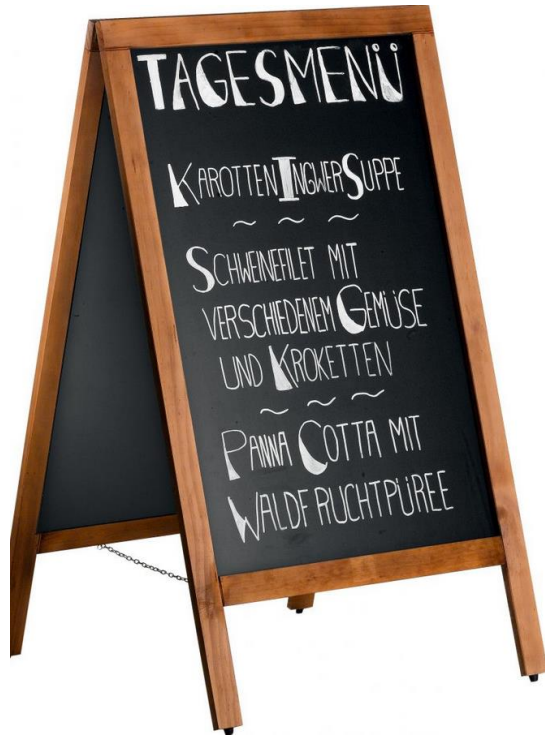 TAGESMENÜ
KAROTTENINGWERSUPPE
~ ~ ~
SCHWEINEFILET MIT
VERSCHIEDENEM GEMÜSE
UND KROKETTEN
~ ~ ~
PANNA COTTA MIT
WALDFRUCHTPÜREE